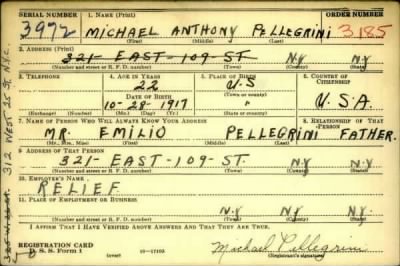 SERIAL NUMBER 1. NAME (Print) ORDER NUMBER
3972 MICHAEL ANTHONY PELLEGRINI 3185
(First) (Middle) (Last)
2. ADDRESS (Print)
321- EAST-109-ST N.Y N.Y
(Number and street or R. F. D. number) (Town) (County) (State)
3. TELEPHONE 4. AGE IN YEARS 5. PLACE OF BIRTH 6. COUNTRY OF CITIZENSHIP
22 U.S
DATE OF BIRTH (Town or county)
10-28-1917 U.S.A.
(Mo.) (Day) (Yr.) (State or country)
7. NAME OF PERSON WHO WILL ALWAYS KNOW YOUR ADDRESS 8. RELATIONSHIP OF THAT PERSON
MR. EMILIO PELLEGRINI FATHER.
(Mr., Mrs., Miss) (First) (Middle) (Last)
9. ADDRESS OF THAT PERSON
321- EAST-109-ST. N.Y N.Y
(Number and street or R. F. D. number) (Town) (County) (State)
10. EMPLOYER'S NAME
RELIEF
11. PLACE OF EMPLOYMENT OR BUSINESS
(Number and street or R. F. D. number) (Town) (County) (State)
I AFFIRM THAT I HAVE VERIFIED ABOVE ANSWERS AND THAT THEY ARE TRUE.
REGISTRATION CARD
D. S. S. Form 1 16-17105 Michael Pellegrini
(Registrant's signature)
312 WEST 20 ST, N.Y.C.